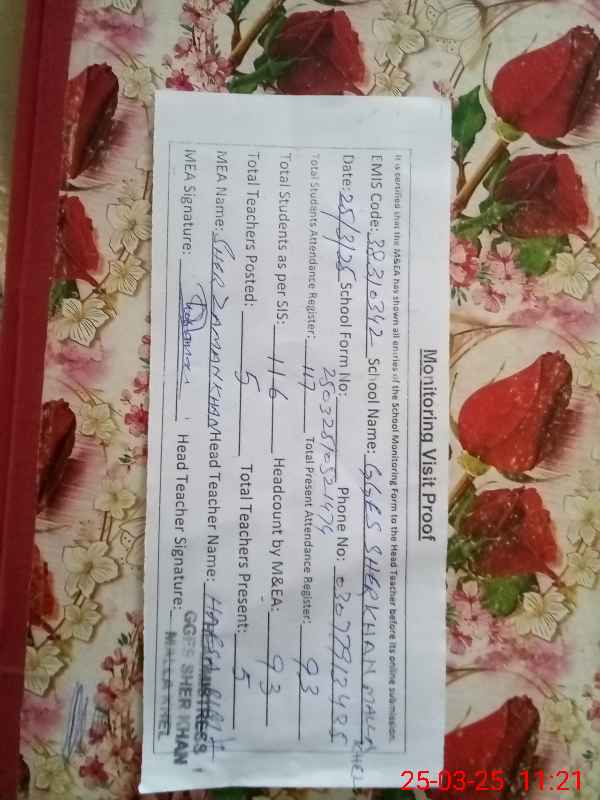 Monitoring Visit Proof
It is certified that the M&EA has shown all entries of the School Monitoring Form to the Head Teacher before its online submission.
EMIS Code: 38310342 School Name: GGES SHER KHAN MALLA KHEL
Date: 25/3/25 School Form No: Phone No: 03077912485
Total Students Attendance Register: 117 Total Present Attendance Register: 93
Total Students as per SIS: 116 Headcount by M&EA: 93
Total Teachers Posted: 5 Total Teachers Present: 5
MEA Name: SHER ZAMAN KHAN Head Teacher Name:
MEA Signature: Head Teacher Signature:
GGES SHER KHAN
MALLA KHEL
25-03-25 11:21